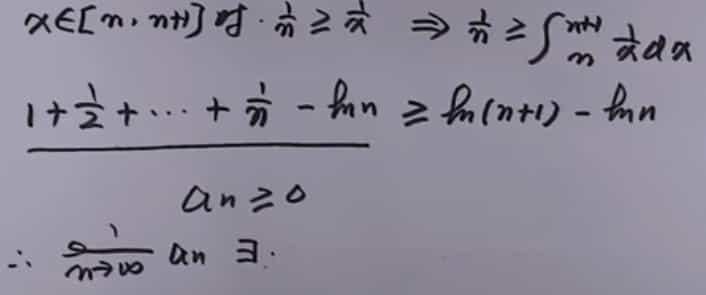 x∈[n, n+1]时. 1/n ≥ 1/x ⇒ 1/n ≥ ∫_n^{n+1} 1/x dx
1 + 1/2 + ... + 1/n - ln n ≥ ln(n+1) - ln n
an ≥ 0
∴ n→∞ an ∃.